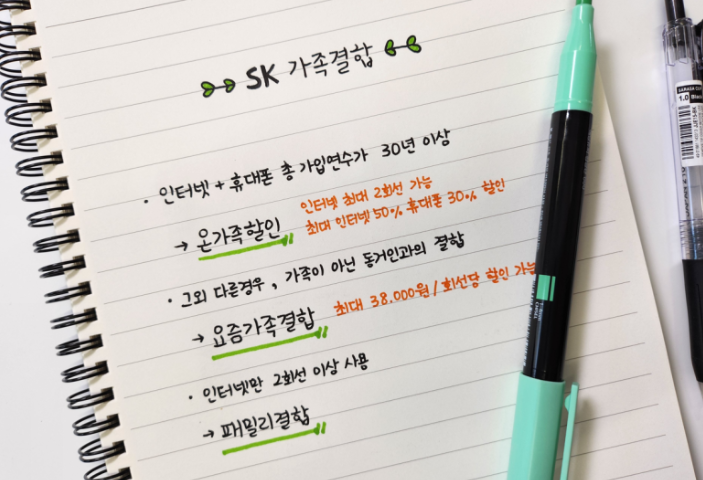 SK 가족결합
· 인터넷 + 휴대폰 총 가입연수가 30년 이상
→ 온가족할인
인터넷 최대 2회선 가능
최대 인터넷 50% 휴대폰 30% 할인
· 그외 다른경우, 가족이 아닌 동거인과의 결합
→ 요즘가족결합
최대 38.000원/회선당 할인 가능
· 인터넷만 2회선 이상 사용
→ 패밀리결합
1.0